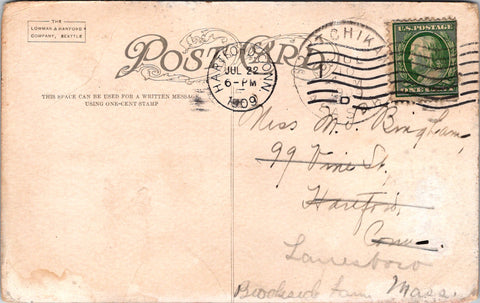 THE
LOWMAN & HANFORD
COMPANY, SEATTLE
POST CARD
HARTFORD, CONN
JUL 22
6-PM
1909
U.S. POSTAGE
ONE
THIS SPACE CAN BE USED FOR A WRITTEN MESSAGE
USING ONE-CENT STAMP
Miss M. J. Bingham,
99 Vine St.
Hartford,
Conn.
Lanesboro
Brookside Farm, Mass.